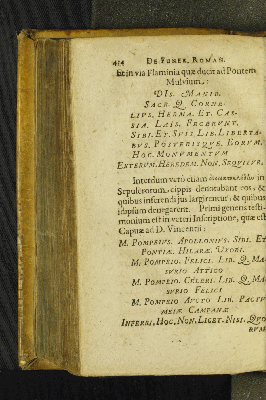 414 DE FUNER. ROMAN.
Et in via Flaminia quæ ducit ad Pontem
Mulvium.:
DIS. MANIB.
SACR. Q. CORNE-
LIVS. HERMA. ET. CAS-
SIA. LAIS. FECERVNT.
SIBI. ET. SVIS. LIB. LIBERTA-
BVS. POSTERISQVE. EORVM.
HOC. MONVMENTVM
EXTERVM. HEREDEM. NON. SEQVITVR.
Interdum verò etiam in
Sepulcrorum cippis denotabant eos, &
quibus inferendi jus largirentur, & quibus
id ipsum denegarent. Primi generis testi-
monium est in veteri Inscriptione, quæ est
Capuæ ad D. Vincentii:
M. POMPEIVS. APOLLONIVS. SIBI. ET
PONTIÆ. HILARÆ. VXORI.
M. POMPEIO. FELICI. LIB. Q. MA-
SVRIO ATTICO
M. POMPEIO. CELERI. LIB. Q. MA-
SVRIO FELICI
M. POMPEIO AVCTO LIB. PACTV-
MEIÆ CAMPANÆ
INFERRI. HOC. NON. LICET. NISI. QVO-
RVM